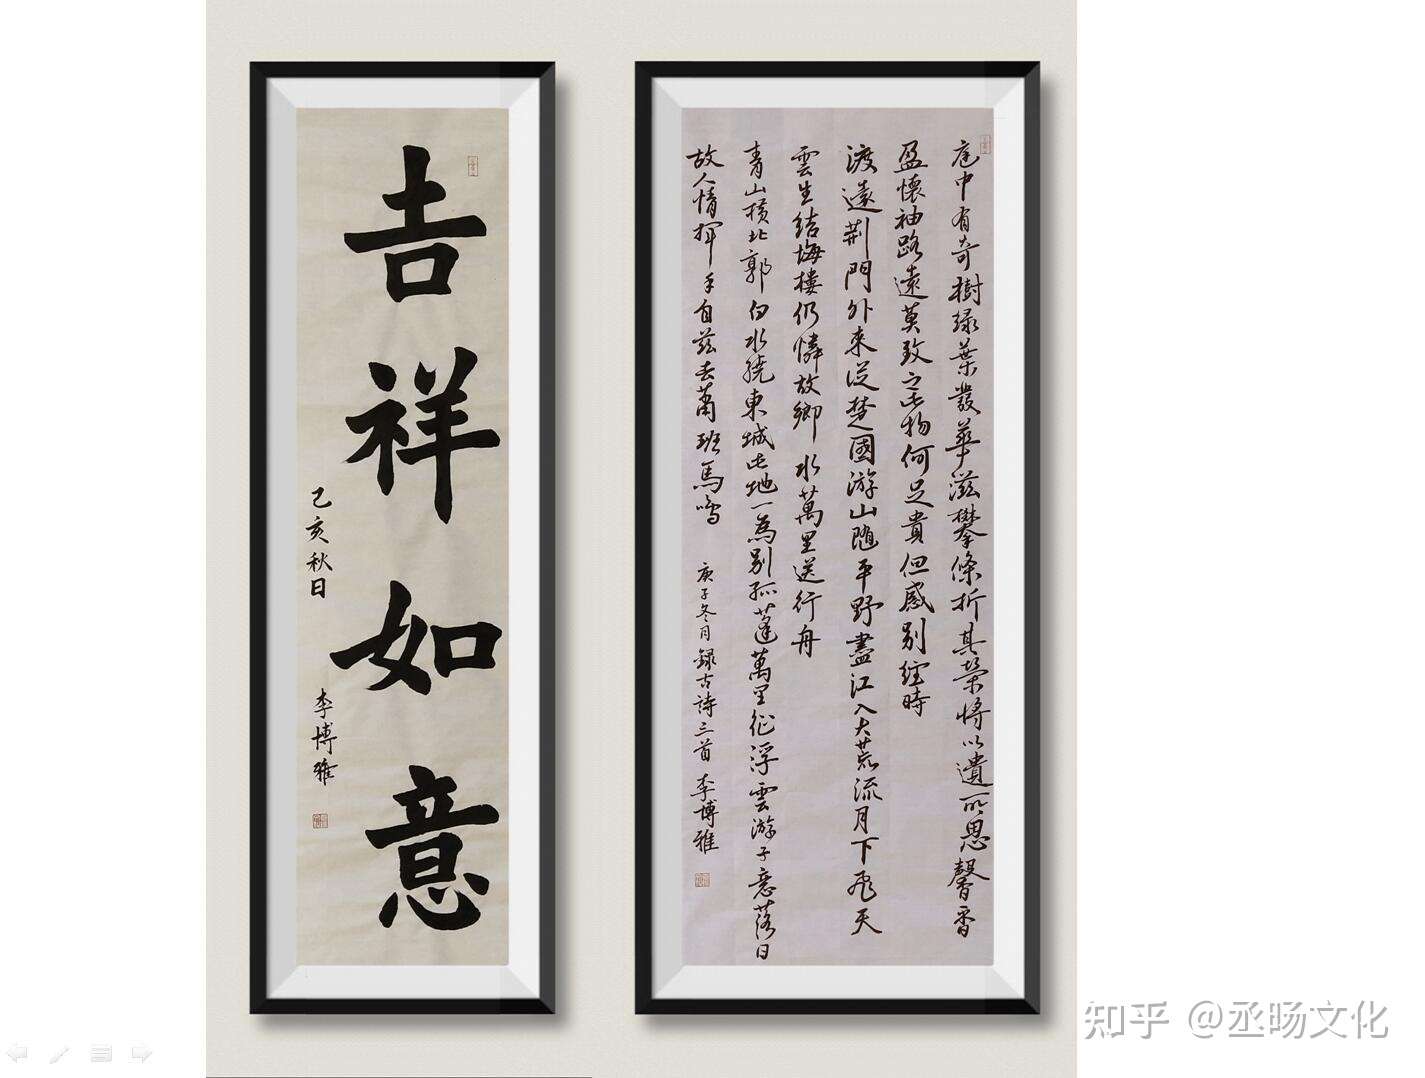 吉祥如意
己亥秋日
李博雅
庭中有奇樹綠葉發華滋攀條折其榮將以遺所思馨香
盈懷袖路遠莫致之此物何足貴但感別經時
渡遠荊門外來從楚國游山隨平野盡江入大荒流月下飛天
雲生結海樓仍憐故鄉水萬里送行舟
青山橫北郭白水繞東城此地一為別孤蓬萬里征浮雲游子意落日
故人情揮手自茲去蕭班馬鳴 庚子冬月錄古詩三首 李博雅
知乎 @丞旸文化